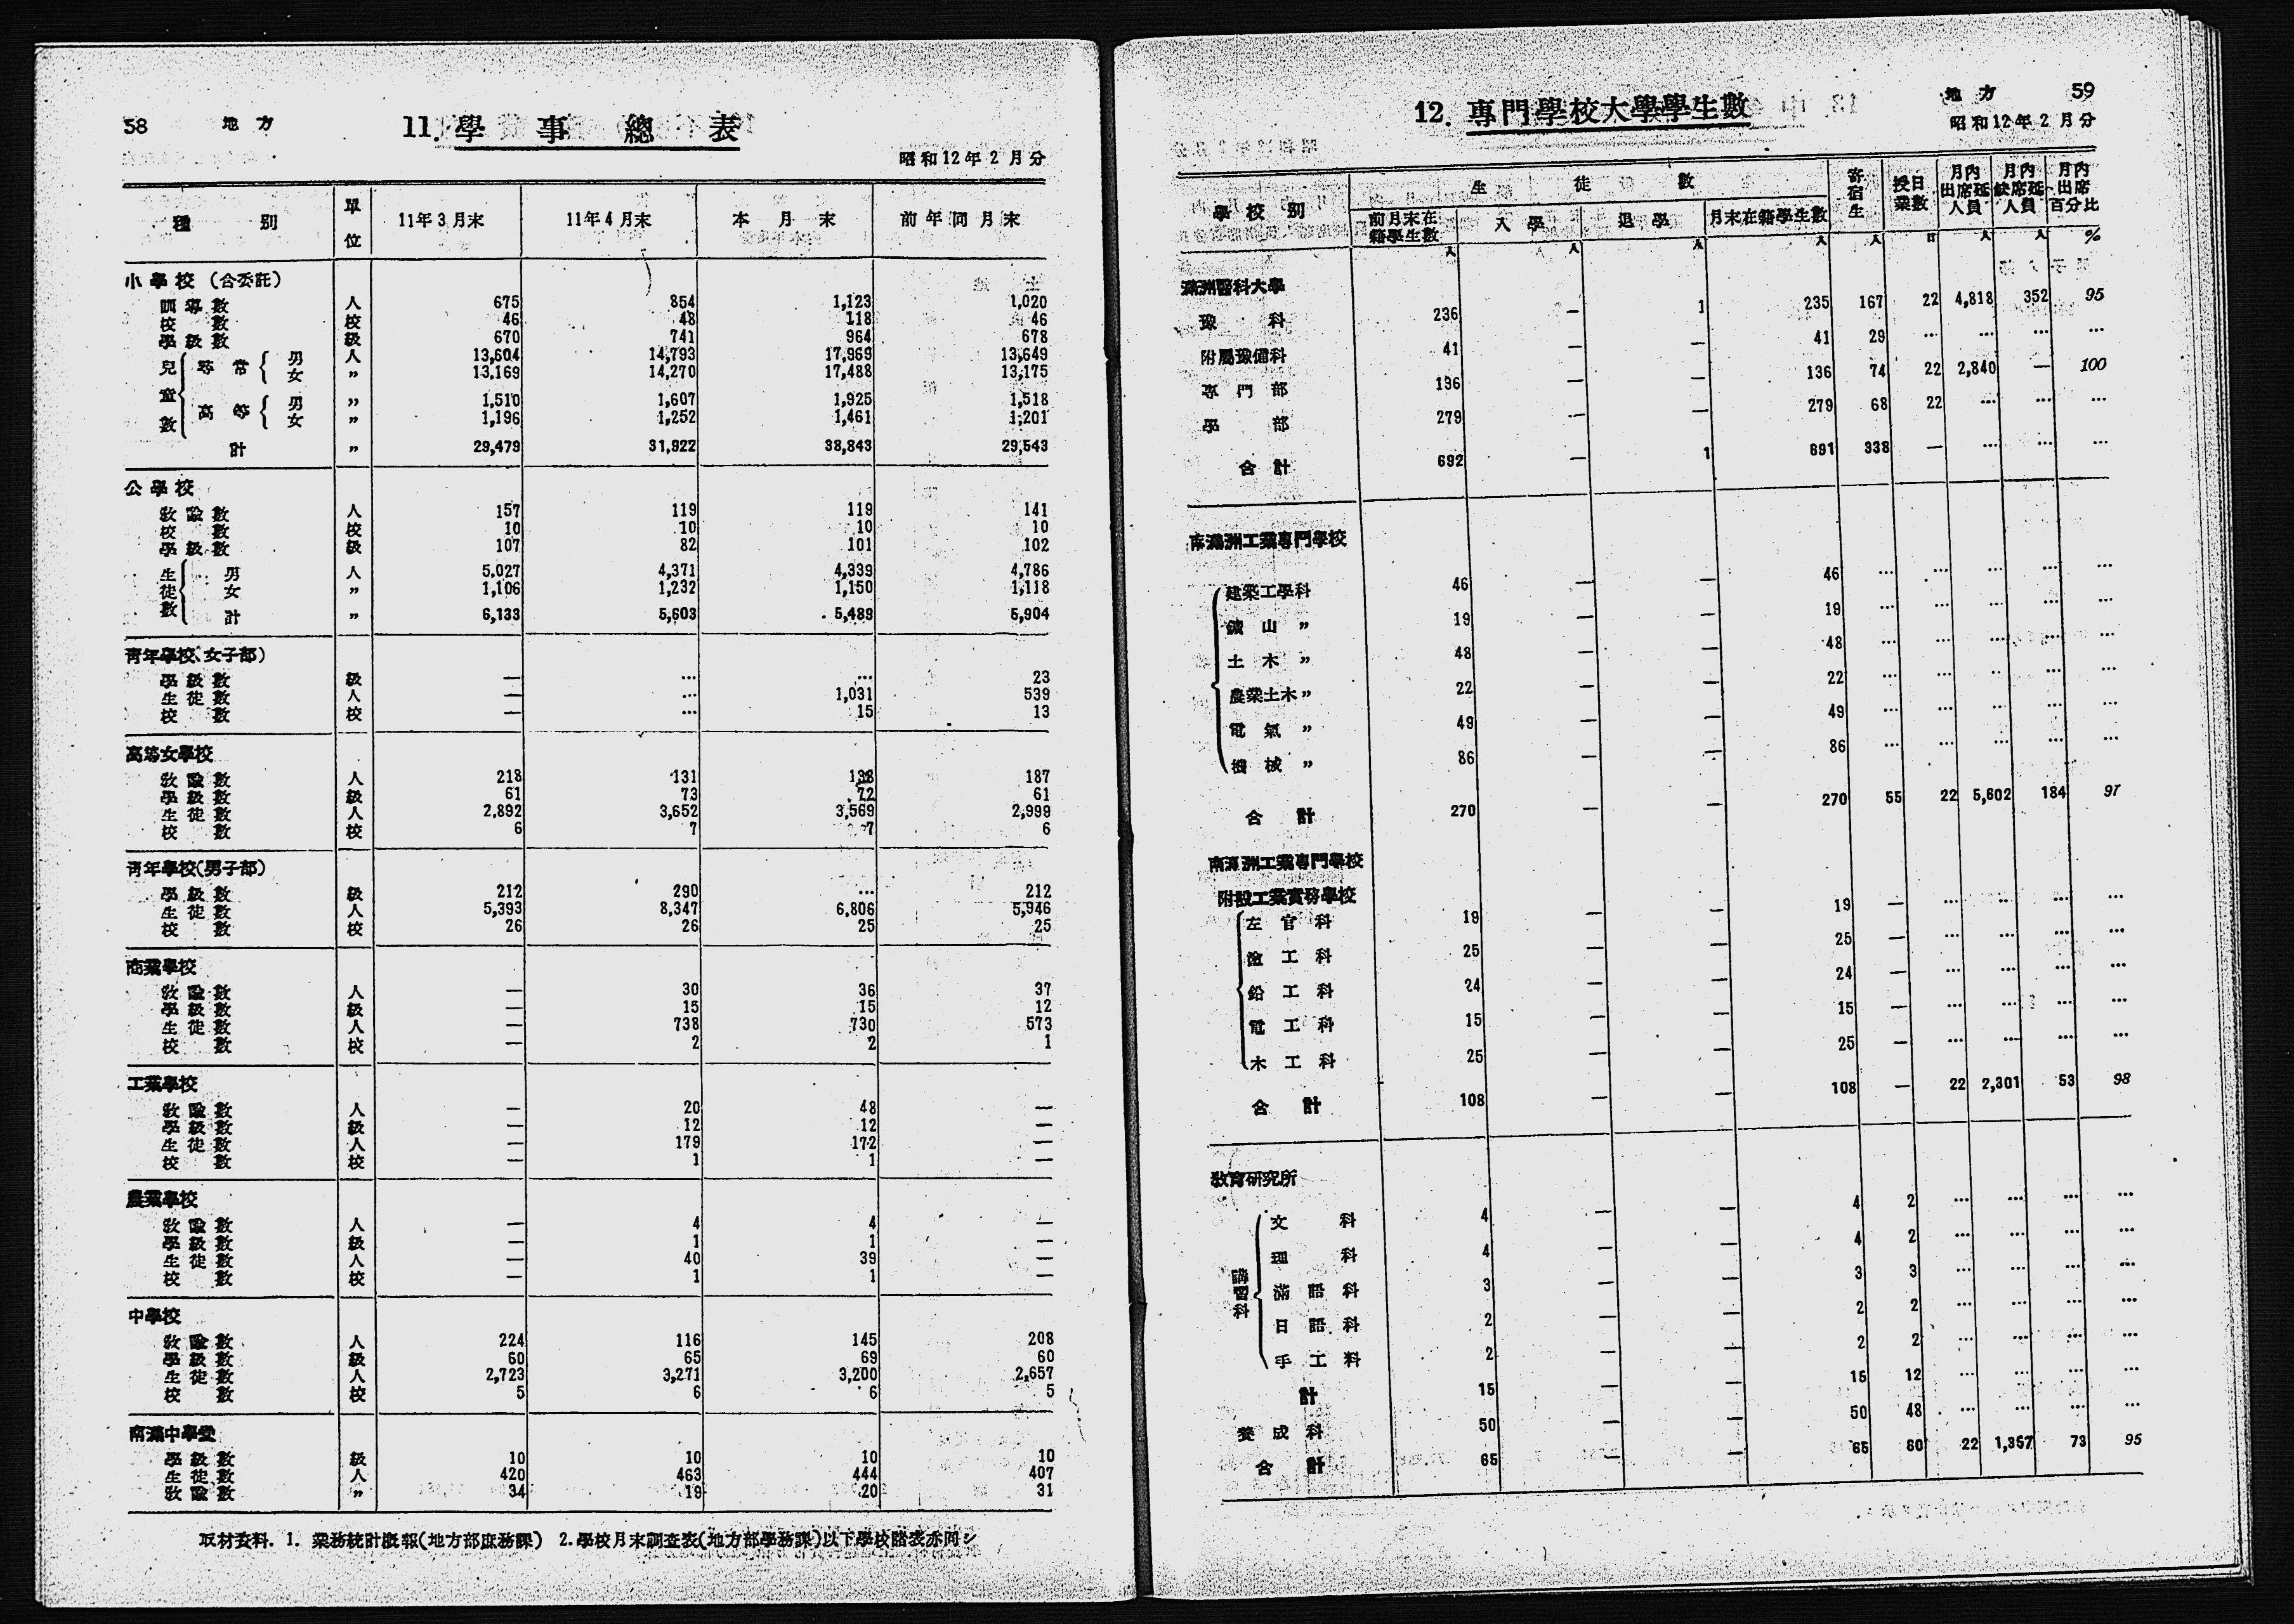 58 地方 11. 學事總表
昭和12年2月分
種別 單位 11年3月末 11年4月末 本月末 前年同月末
小學校(合委託)
訓導數 人 675 854 1,123 1,020
校數 校 46 48 118 46
學級數 級 670 741 964 678
兒童數 尋常 男 人 13,604 14,793 17,969 13,649
女 〃 13,169 14,270 17,488 13,175
高等 男 〃 1,510 1,607 1,925 1,518
女 〃 1,196 1,252 1,461 1,201
計 〃 29,479 31,922 38,843 29,543
公學校
敎諭數 人 157 119 119 141
校數 校 10 10 10 10
學級數 級 107 82 101 102
生徒數 男 人 5,027 4,371 4,339 4,786
女 〃 1,106 1,232 1,150 1,118
計 〃 6,133 5,603 5,489 5,904
靑年學校(女子部)
學級數 級 — … … 23
生徒數 人 — … 1,031 539
校數 校 — … 15 13
高等女學校
敎諭數 人 218 131 138 187
學級數 級 61 73 72 61
生徒數 人 2,892 3,652 3,569 2,999
校數 校 6 7 7 6
靑年學校(男子部)
學級數 級 212 290 … 212
生徒數 人 5,393 8,347 6,806 5,946
校數 校 26 26 25 25
商業學校
敎諭數 人 — 30 36 37
學級數 級 — 15 15 12
生徒數 人 — 738 730 573
校數 校 — 2 2 1
工業學校
敎諭數 人 — 20 48 —
學級數 級 — 12 12 —
生徒數 人 — 179 172 —
校數 校 — 1 1 —
農業學校
敎諭數 人 — 4 4 —
學級數 級 — 1 1 —
生徒數 人 — 40 39 —
校數 校 — 1 1 —
中學校
敎諭數 人 224 116 145 208
學級數 級 60 65 69 60
生徒數 人 2,723 3,271 3,200 2,657
校數 校 5 6 6 5
南滿中學堂
學級數 級 10 10 10 10
生徒數 人 420 463 444 407
敎諭數 〃 34 19 20 31
取材資料. 1. 業務統計月報(地方部庶務課) 2.學校月末調査表(地方部學務課)以下學校諸表亦同シ
12. 專門學校大學學生數 地方 59
昭和12年2月分
學校別 生徒數 寄宿生 授業日數 月內出席延人員 月內缺席延人員 月內出席百分比
前月末在籍學生數 入學 退學 月末在籍學生數
人 人 人 人 人 日 人 人 %
滿洲醫科大學
豫科 236 — 1 235 167 22 4,818 352 95
附屬豫備科 41 — — 41 29 … … … …
專門部 136 — — 136 74 22 2,840 — 100
學部 279 — — 279 68 22 … … …
合計 692 — 1 691 338 — … … …
南滿洲工業專門學校
建築工學科 46 — — 46 … … … … …
鑛山〃 19 — — 19 … … … … …
土木〃 48 — — 48 … … … … …
農業土木〃 22 — — 22 … … … … …
電氣〃 49 — — 49 … … … … …
機械〃 86 — — 86 … … … … …
合計 270 — — 270 55 22 5,602 184 97
南滿洲工業專門學校
附設工業實務學校
左官科 19 — — 19 — … … … …
塗工科 25 — — 25 — … … … …
鉛工科 24 — — 24 — … … … …
電工科 15 — — 15 — … … … …
木工科 25 — — 25 — … … … …
合計 108 — — 108 — 22 2,301 53 98
敎育硏究所
講習科 文科 4 — — 4 2 … … … …
理科 4 — — 4 2 … … … …
滿語科 3 — — 3 3 … … … …
日語科 2 — — 2 2 … … … …
手工科 2 — — 2 2 … … … …
計 15 — — 15 12 … … … …
養成科 50 — — 50 48 … … … …
合計 65 — — 65 60 22 1,357 73 95